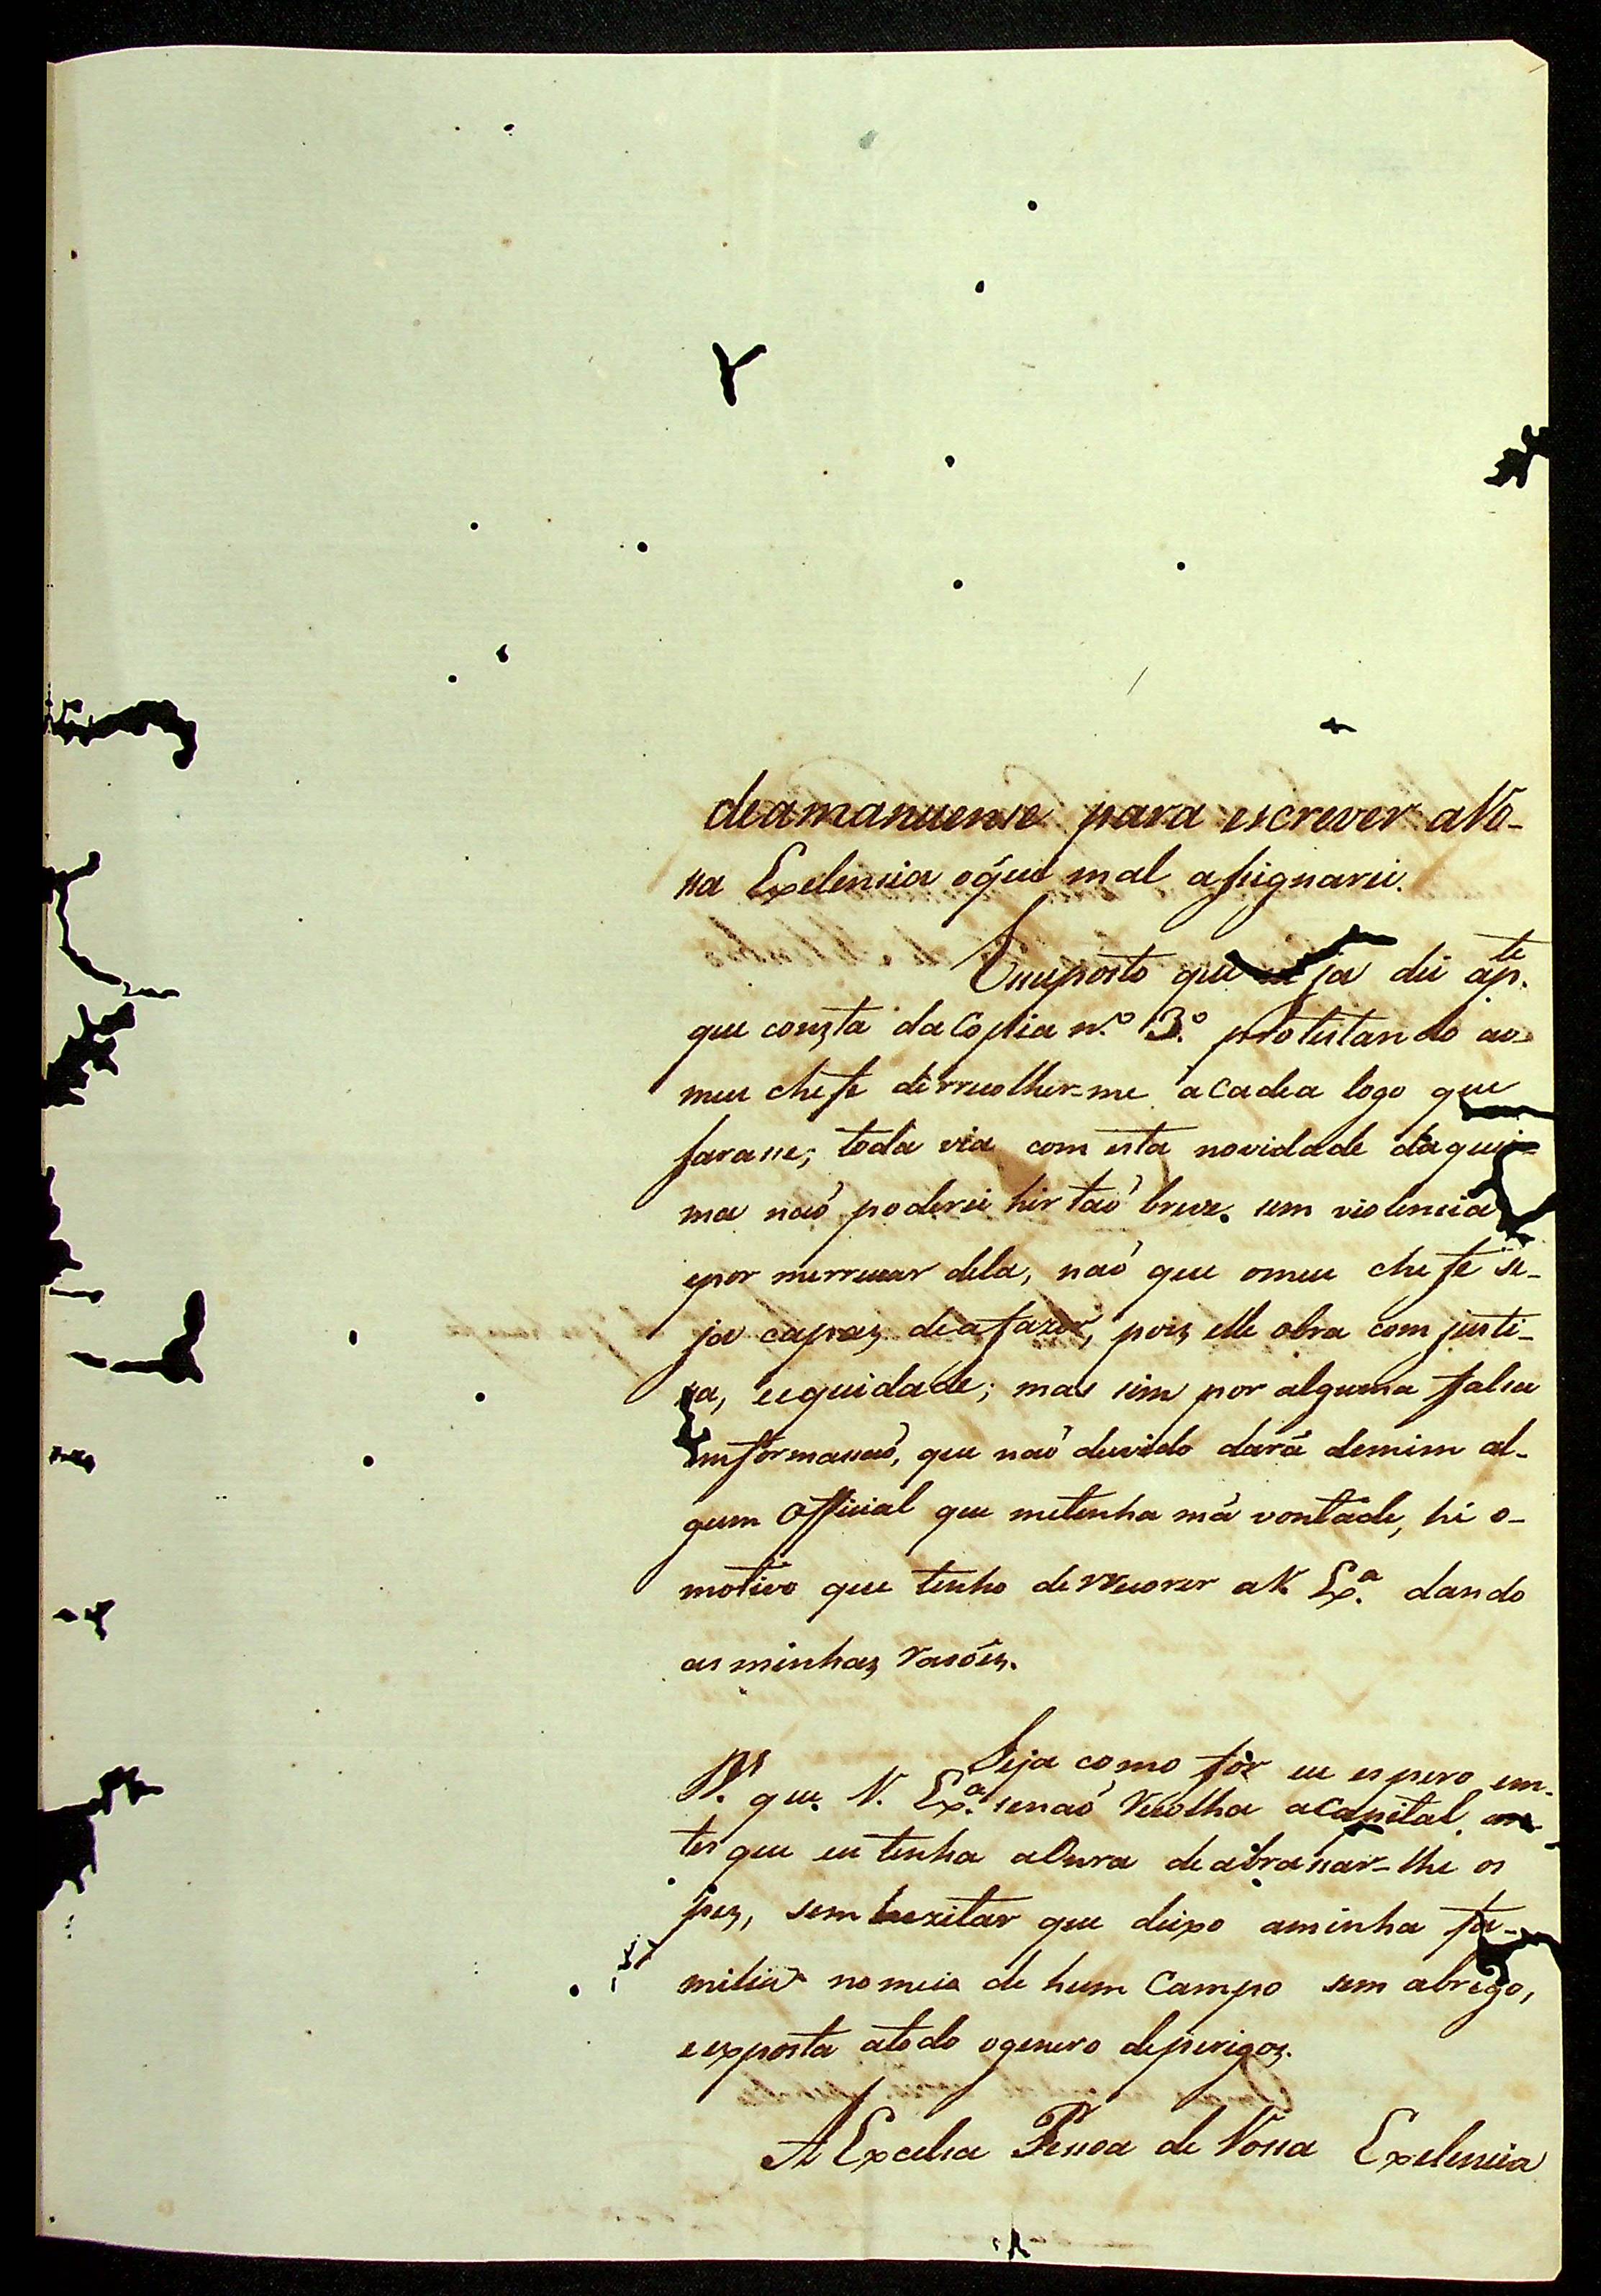 deamanuense para escrever aVo-
ssa Exelencia oque mal assignarei.
Ensuposto que ja dei ap.te
que consta da Copia n.º 3.º protestando ao
meu chefe derrecolher-me á cadea logo que
sarasse; toda via com esta novidade daquei-
ma naõ poderei hir taõ breve. sem violencia
epor merrecear dela, naõ que omeu chefe se-
ja capaz deafazer, poiz elle obra com justi-
sa, eequidade; mas sim por alguma falsa
imformasaõ, que naõ duvido dará demim al-
gum Official que metenha má vontade, hé o-
motivo que tenho derrecorer aV. Ex.ª dando
as minhaz Rasóẽz.
Seja como fôr eu espero em
D.s que V. Ex.ª senaõ Recolha aCapital an-
tes que eu tenha aOnra deabrasar-lhe os
pez, sem hezitar que deixo aminha fa-
milia nomeio de hum Campo sem abrigo,
eexposta atodo ogenero deperigoz.
A Excelsa Pessoa de Vossa Exelencia